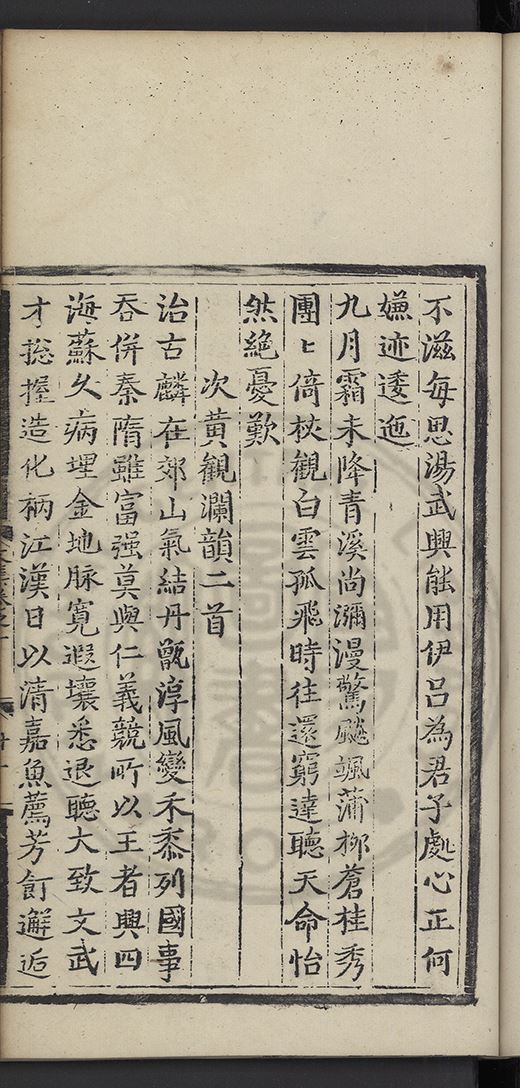 不滋每思湯武興能用伊呂為君子處心正何
嫌迹逶迤
九月霜未降青溪尚瀰漫驚飈颯蒲柳蒼桂秀
團〻倚杖觀白雲孤飛時往還窮達聽天命怡
然絶憂歎
次黄觀瀾韻二首
治古麟在郊山氣結丹甑淳風變禾黍列國事
吞併秦隋雖富强莫與仁義競所以王者興四
海蘇久病埋金地脉寛遐壤悉退聽大致文武
才捴握造化柄江漢日以清嘉魚薦芳飣邂逅